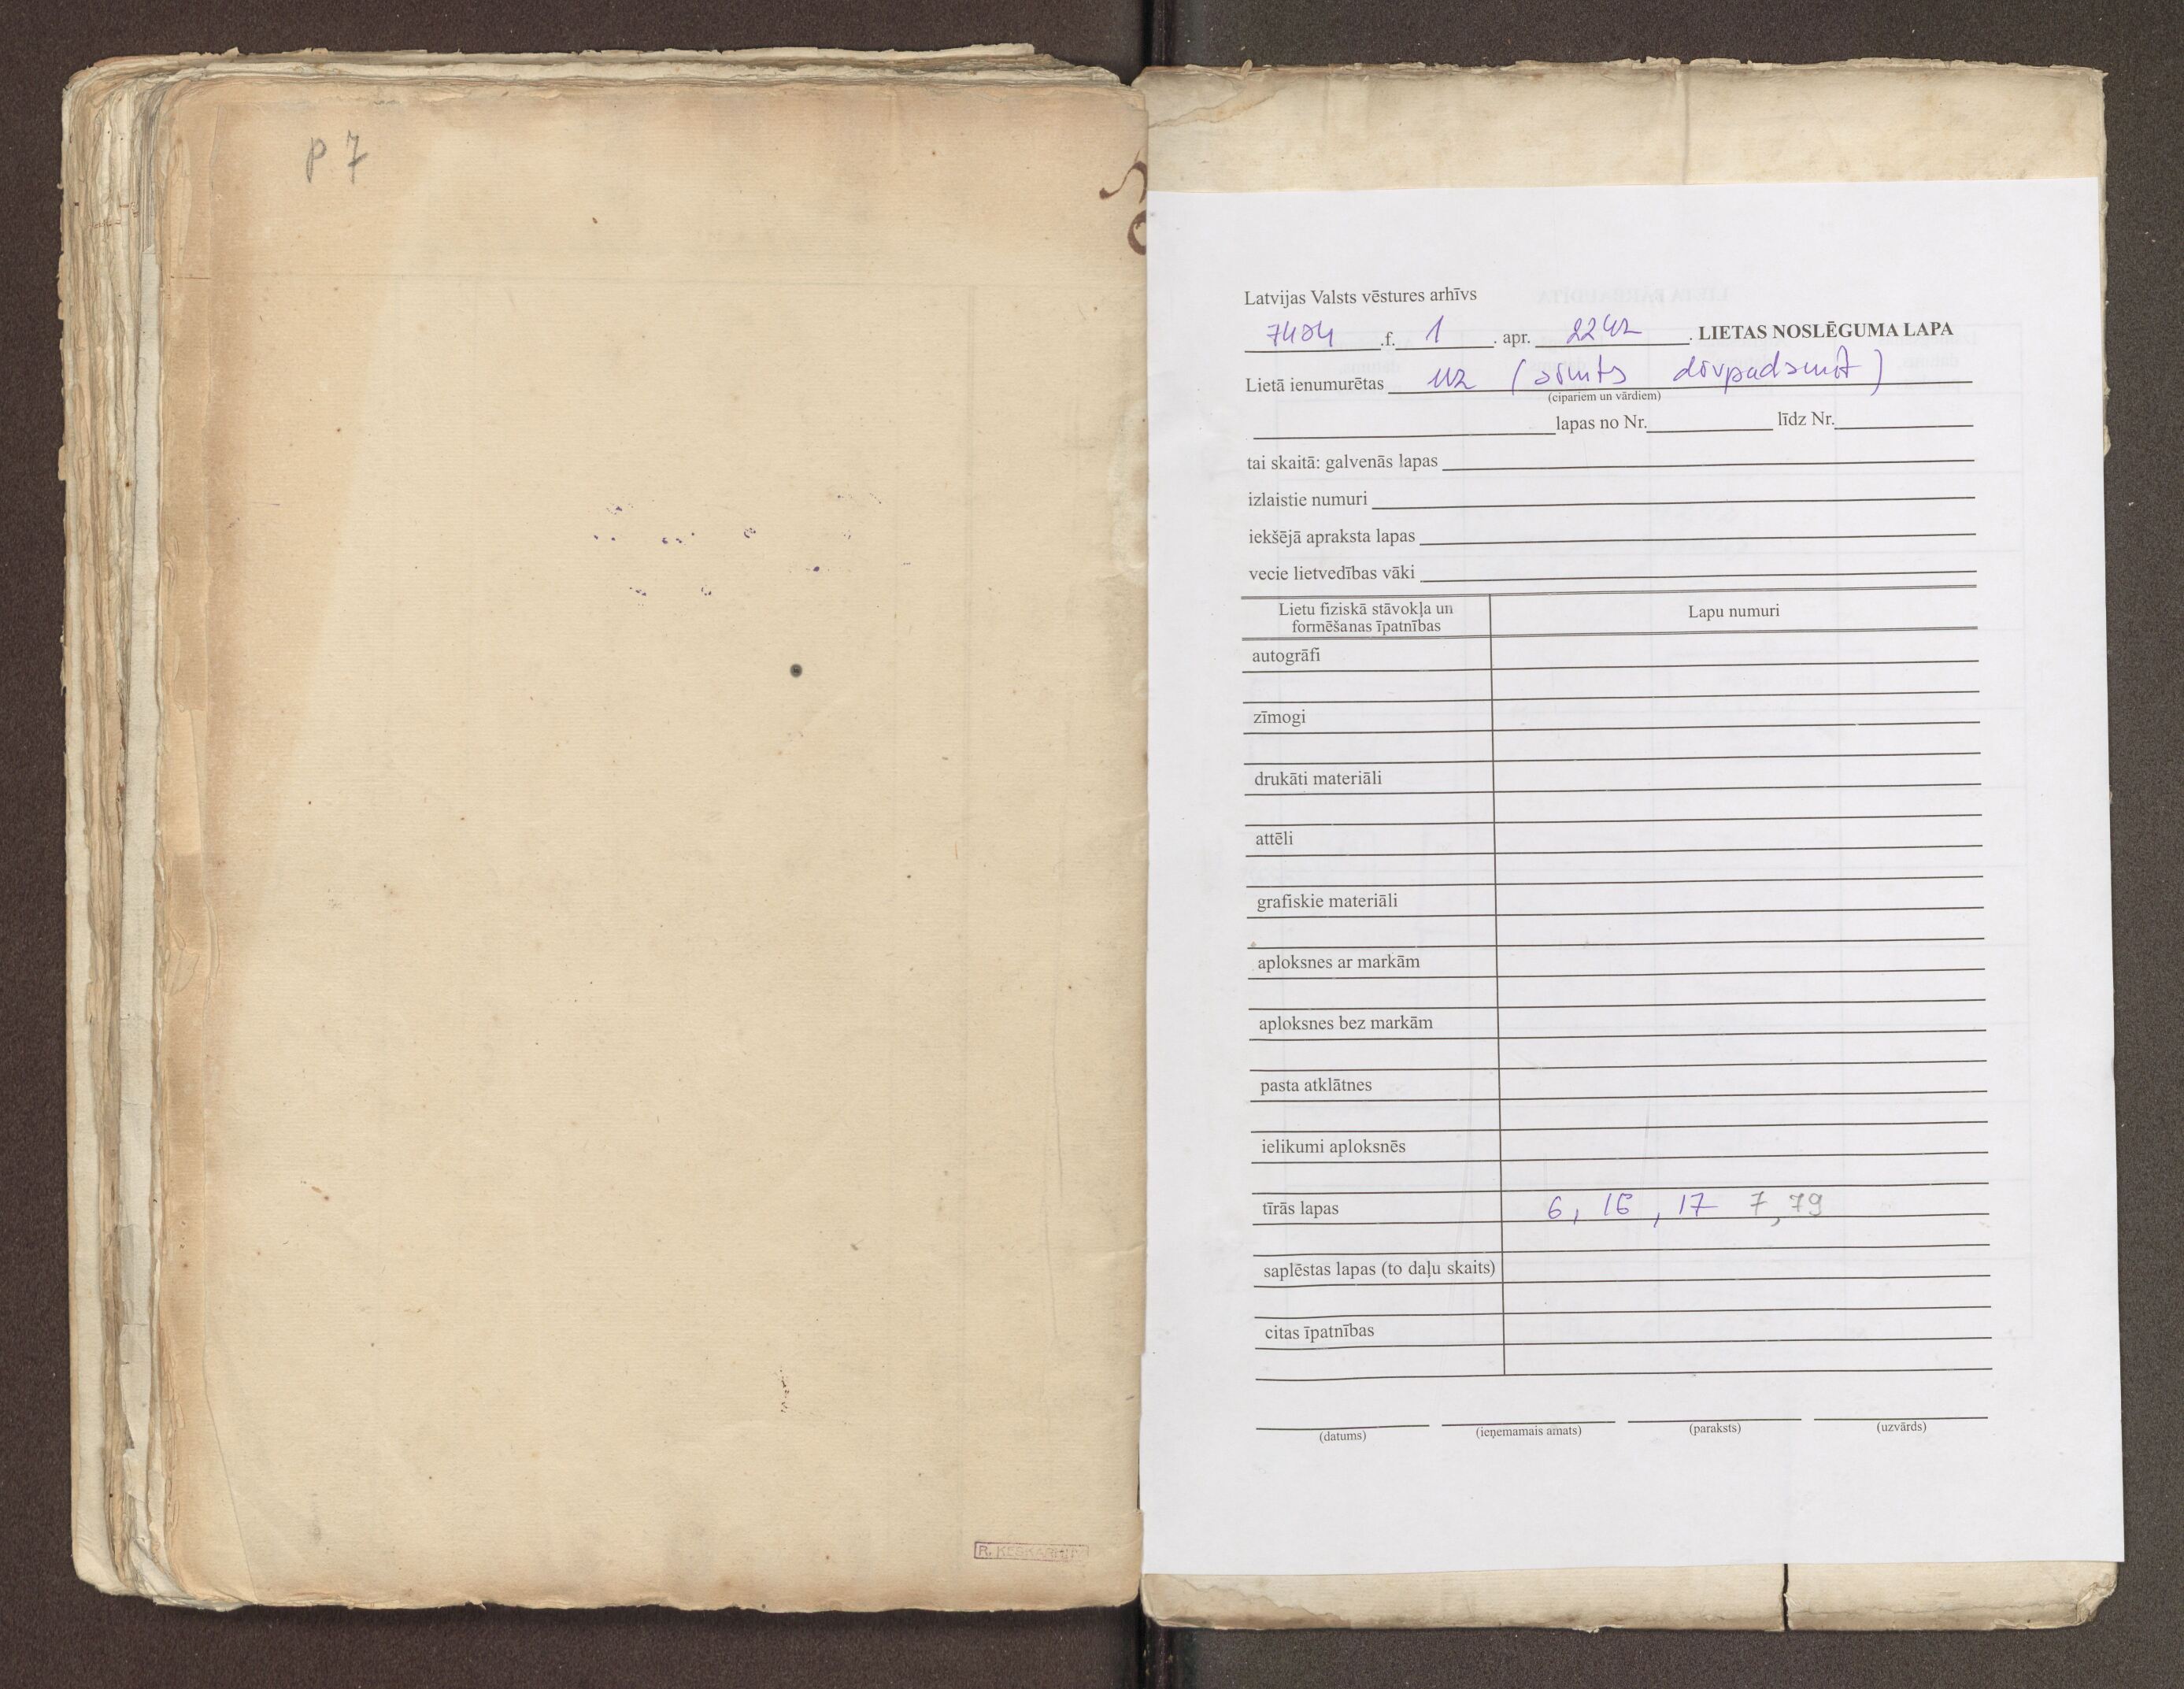 P 7
R. KESKARHIIV
Latvijas Valsts vēstures arhīvs
7404 .f. 1 . apr. 2242 . LIETAS NOSLĒGUMA LAPA
Lietā ienumurētas 112 (simts divpadsmit)
(cipariem un vārdiem)
lapas no Nr. līdz Nr.
tai skaitā: galvenās lapas
izlaistie numuri
iekšējā apraksta lapas
vecie lietvedības vāki
Lietu fiziskā stāvokļa un formēšanas īpatnības
Lapu numuri
autogrāfi
zīmogi
drukāti materiāli
attēli
grafiskie materiāli
aploksnes ar markām
aploksnes bez markām
pasta atklātnes
ielikumi aploksnēs
tīrās lapas 6, 16, 17 7, 79
saplēstas lapas (to daļu skaits)
citas īpatnības
(datums) (ieņemamais amats) (paraksts) (uzvārds)